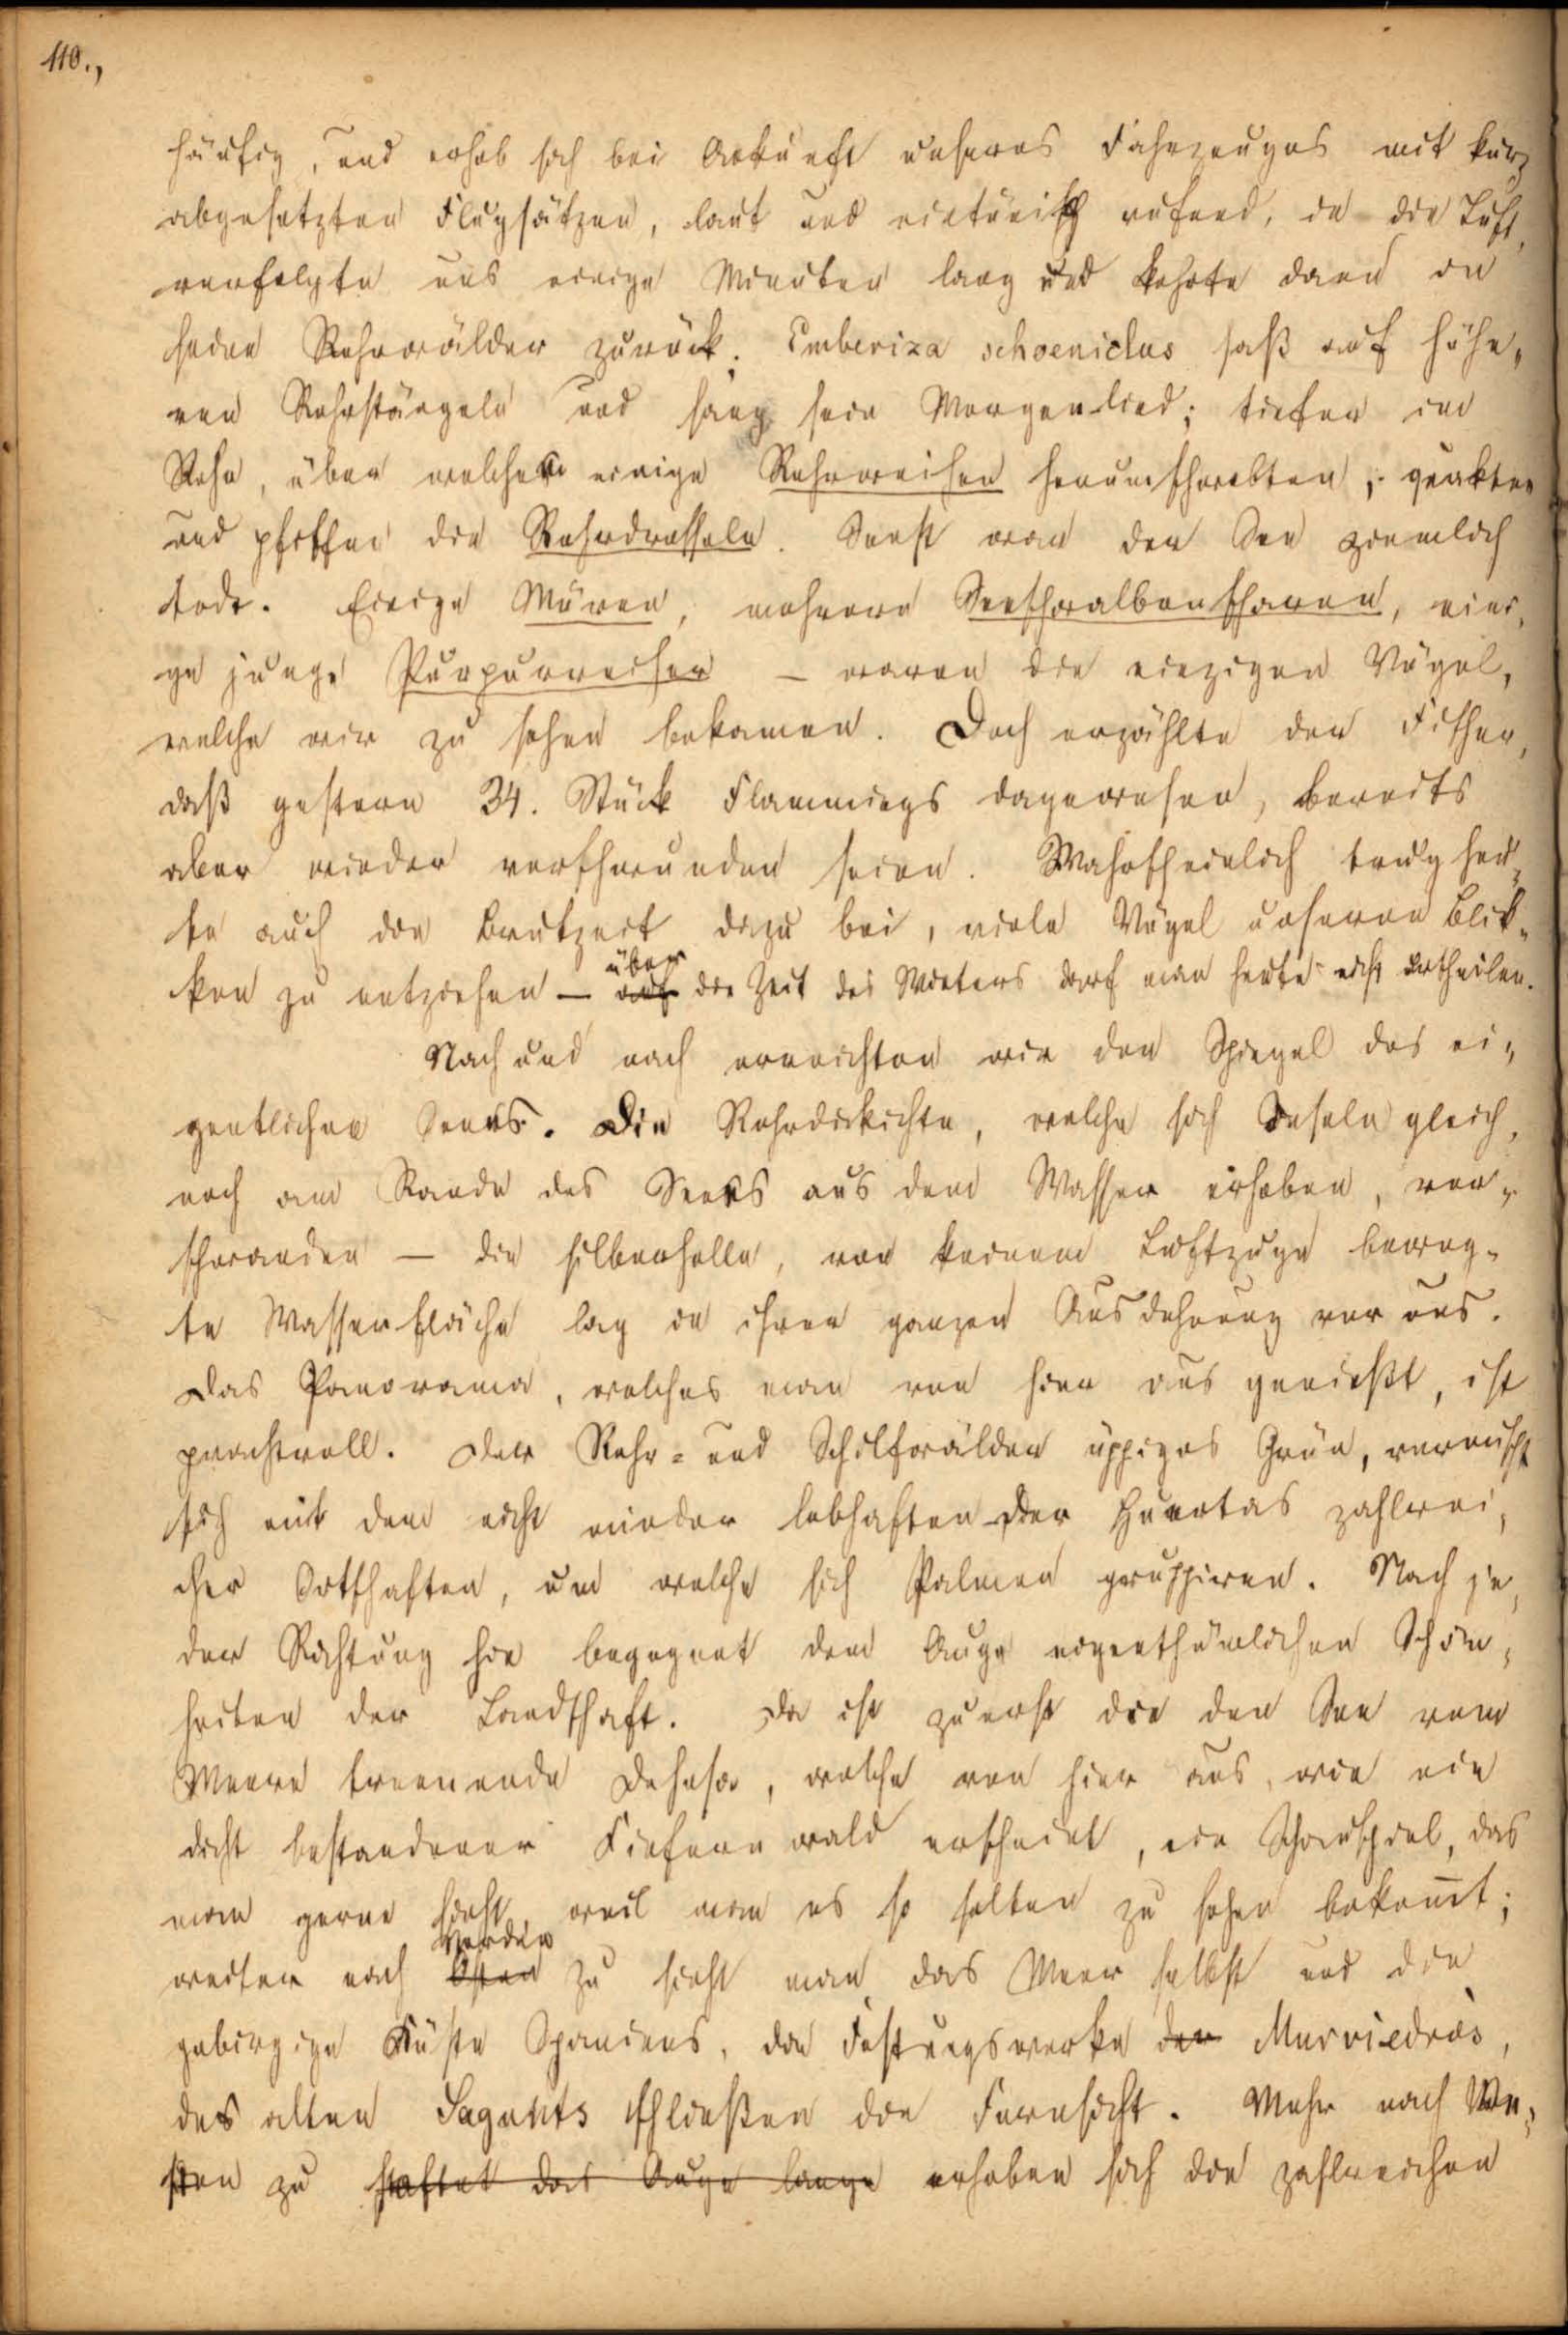 110.,
häufig, und erhob sich bei Ankunft unseres Fahrzeuges mit kurz
abgesetzten Flugsätzen, laut und eintönig rufend, in die Luft,
verfolgte uns einige Minuten lang und kehrte dann in
seine Rohrwälder zurück. Emberiza schoeniclus saß auf höhe„
ren Rohrstängeln und sang sein Morgenlied; tiefer im
Rohr, über welchem einige Rohrweihen herumschwebten, quakten
und pfiffen die Rohrdrosseln. Sonst war der See ziemlich
todt. Einige Möven, mehrere Seeschwalbenscharen, eini„
ge junge Purpurreiher – waren die einzigen Vögel,
welche wir zu sehen bekamen. Doch erzählte der Fischer,
daß gestern 34. Stück Flammings dagewesen, bereits
aber wieder verschwunden seien. Wahrscheinlich trug heu„
te auch die Brutzeit dazu bei, viele Vögel unseren Blik„
ken zu entziehen – auf über die Zeit des Winters darf man heute nicht urtheilen.
Nach und nach erreichten wir den Spiegel des ei„
gentlichen Sees. Die Rohrdickichte, welche sich Inseln gleich,
noch am Rande des Sees aus dem Wasser erhoben, ver„
schwanden – die silberhelle, von keinem Luftzuge beweg„
te Wasserfläche lag in ihrer ganzen Ausdehnung vor uns.
Das Panorama, welches man von hier aus genießt, ist
prachtvoll. Der Rohr= und Schilfwälder üppiges Grün, vermischt
sich mit dem nicht minder lebhaften der Huertas zahlrei„
cher Ortschaften, um welche sich Palmen gruppiren. Nach je„
der Richtung hin begegnet dem Auge eigenthümlichen Schön„
heiten der Landschaft. Da ist zuerst die den See vom
Meere trennende Dehesa, welche von hier aus, wie ein
dicht bestandener Kiefernwald erscheint, ein Schauspiel, das
man gerne sieht, weil man es so selten zu sehen bekommt;
weiter nach Osten Norden zu sieht man das Meer selbst und die
gebirgige Küste Spaniens, die Festungswerke der Murviedros,
des alten Sagunts schließen die Fernsicht. Mehr nach We„
sten zu haftet das Auge lange erheben sich die zahlreichen